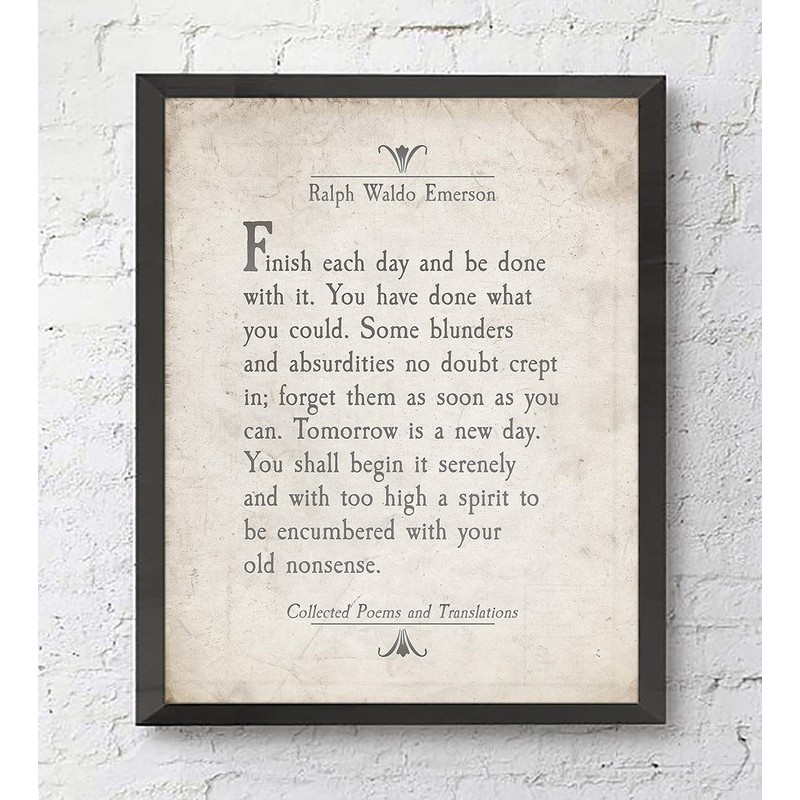 Ralph Waldo Emerson
Finish each day and be done
with it. You have done what
you could. Some blunders
and absurdities no doubt crept
in; forget them as soon as you
can. Tomorrow is a new day.
You shall begin it serenely
and with too high a spirit to
be encumbered with your
old nonsense.
Collected Poems and Translations